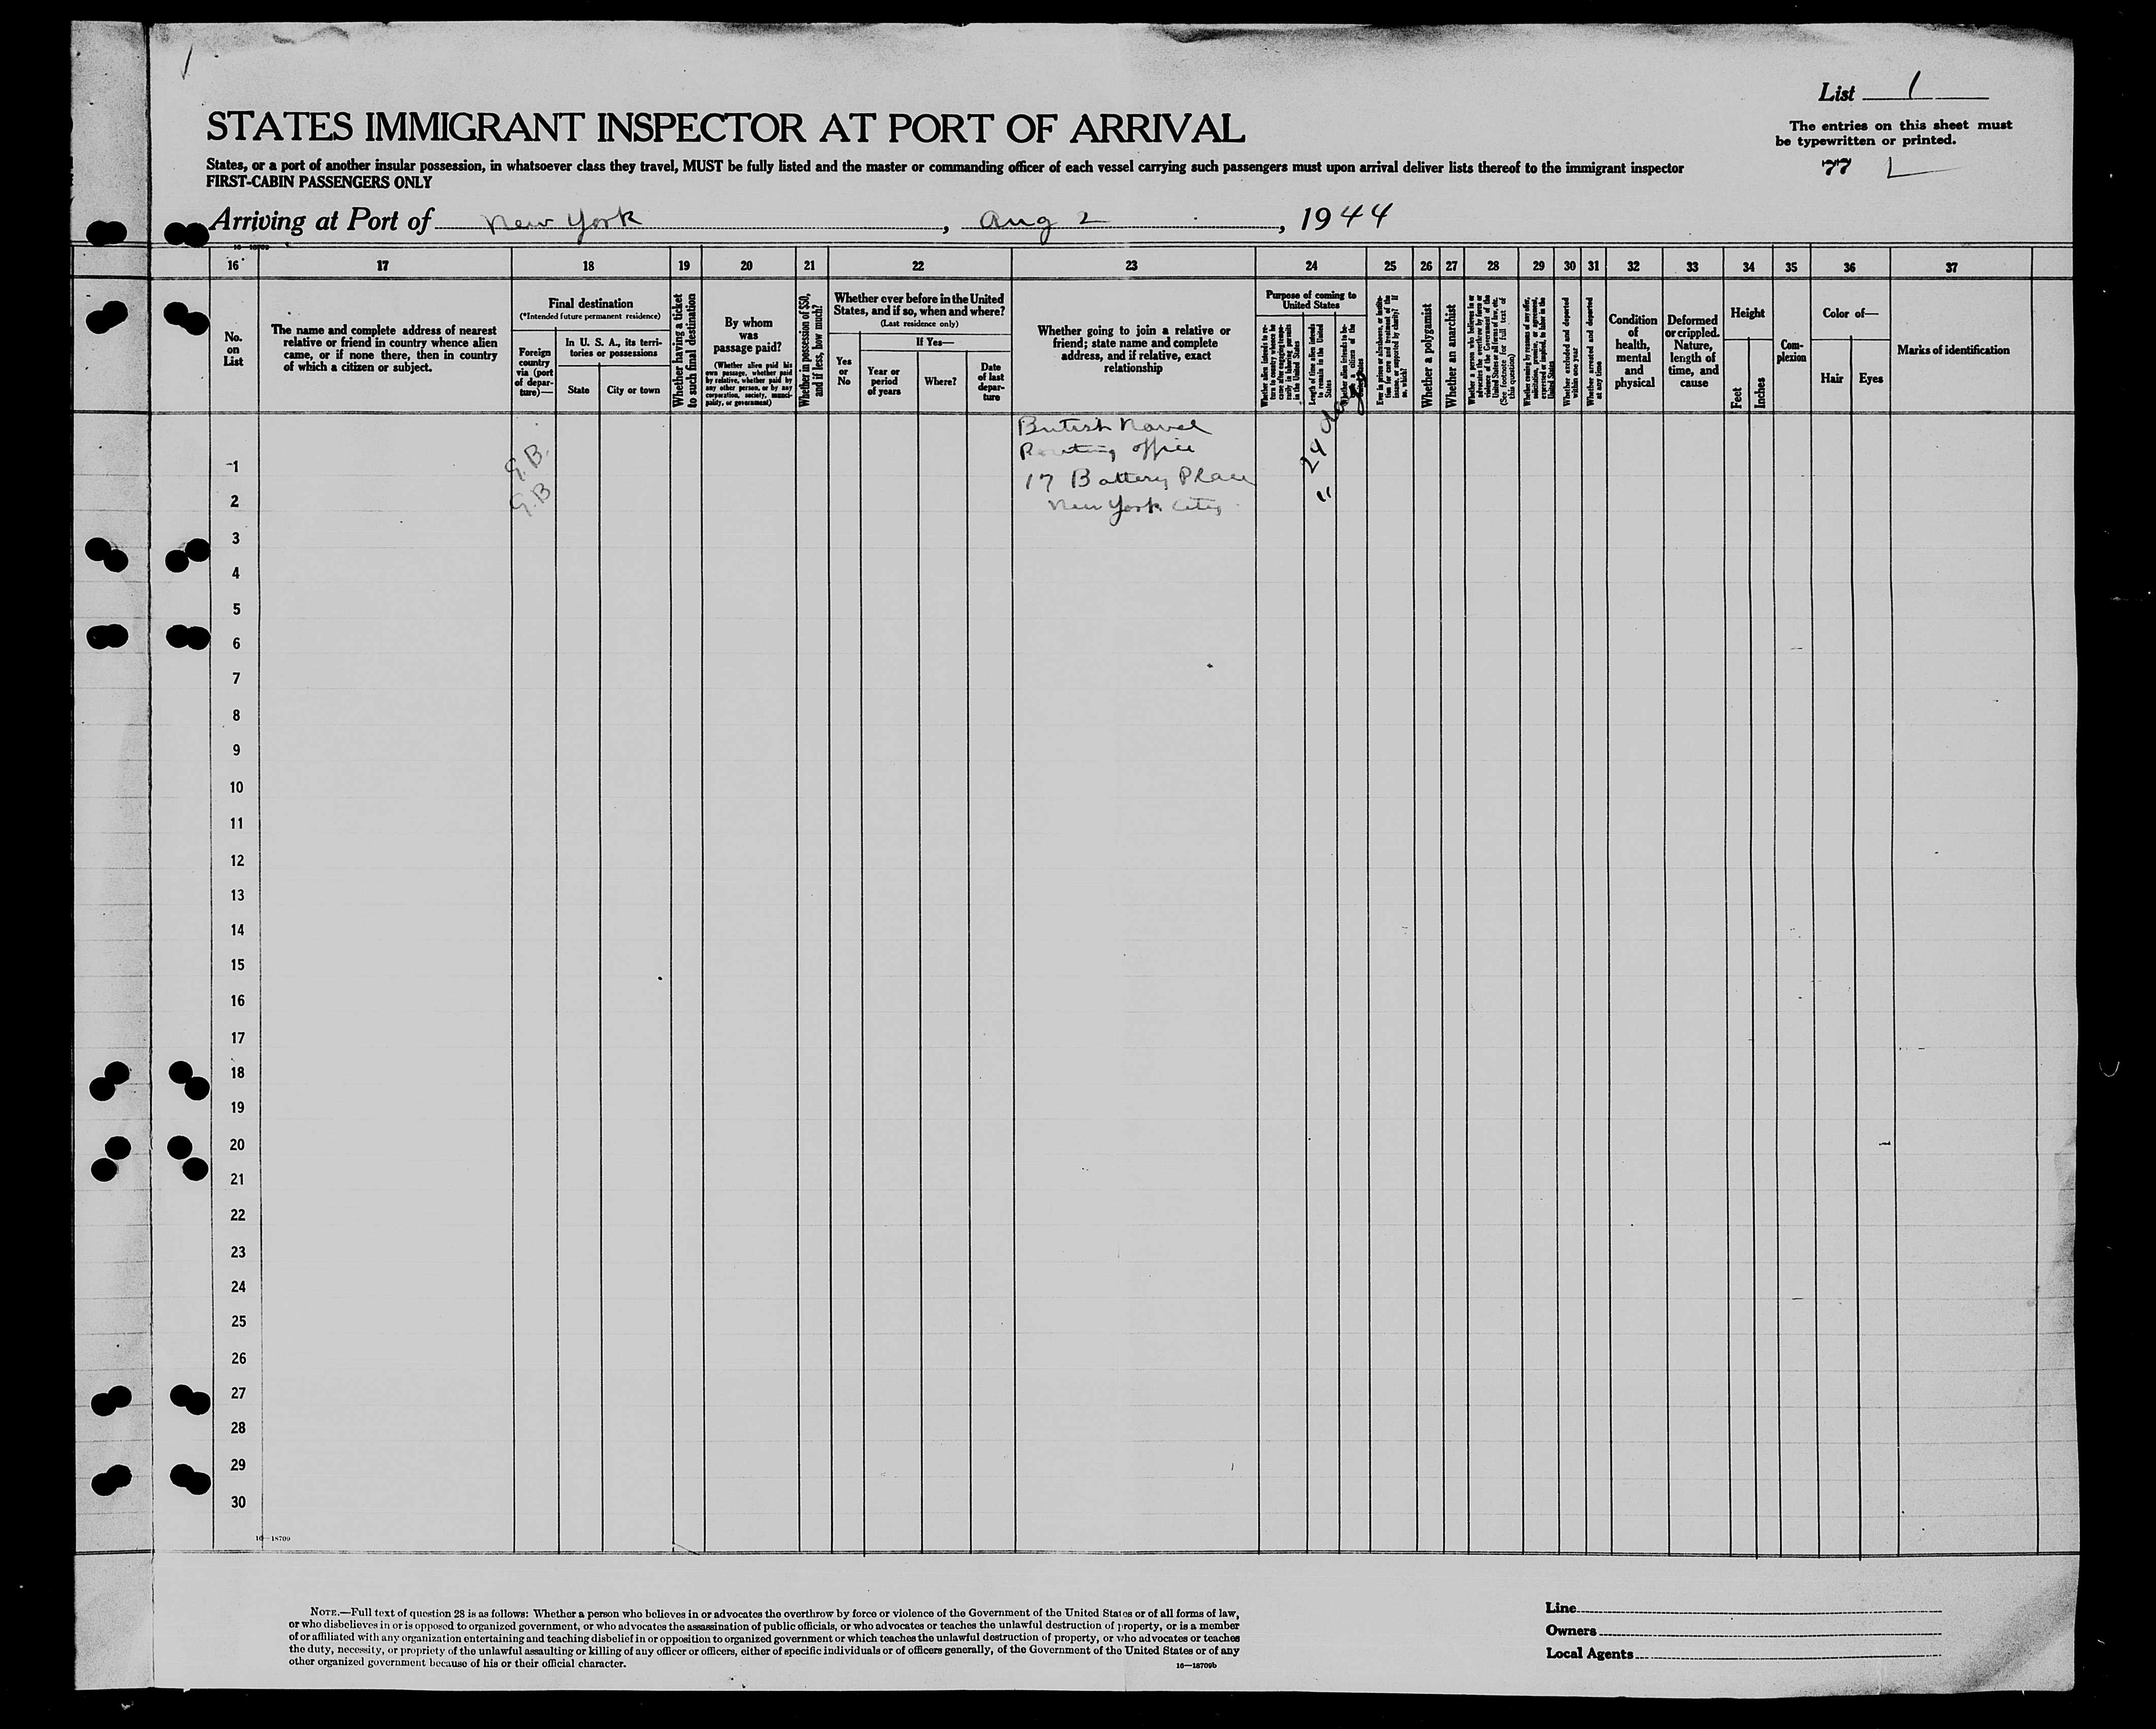 /
List 1
STATES IMMIGRANT INSPECTOR AT PORT OF ARRIVAL
The entries on this sheet must
be typewritten or printed.
States, or a port of another insular possession, in whatsoever class they travel, MUST be fully listed and the master or commanding officer of each vessel carrying such passengers must upon arrival deliver lists thereof to the immigrant inspector
FIRST-CABIN PASSENGERS ONLY
77 L
Arriving at Port of New York, Aug 2, 1944
16—18709
16 17 18 19 20 21 22 23 24 25 26 27 28 29 30 31 32 33 34 35 36 37
No.
on
List
The name and complete address of nearest
relative or friend in country whence alien
came, or if none there, then in country
of which a citizen or subject.
Final destination
(*Intended future permanent residence)
Foreign
country
via (port
of depar-
ture)—
In U. S. A., its terri-
tories or possessions
State
City or town
Whether having a ticket
to such final destination
By whom
was
passage paid?
(Whether alien paid his
own passage, whether paid
by relative, whether paid by
any other person, or by any
corporation, society, munici-
pality, or government)
Whether in possession of $50,
and if less, how much?
Whether ever before in the United
States, and if so, when and where?
(Last residence only)
Yes
or
No
If Yes—
Year or
period
of years
Where?
Date
of last
depar-
ture
Whether going to join a relative or
friend; state name and complete
address, and if relative, exact
relationship
Purpose of coming to
United States
Whether alien intends to re-
turn to country whence he
came after engaging tempo-
rarily in laboring pursuits
in the United States
Length of time alien intends
to remain in the United
States
Whether alien intends to be-
come a citizen of the
United States
Ever in prison or almshouse, or institu-
tion for care and treatment of the
insane, or supported by charity? If
so, which?
Whether a polygamist
Whether an anarchist
Whether a person who believes in or
advocates the overthrow by force or
violence of the Government of the
United States or all forms of law, etc.
(See footnote for full text of
this question)
Whether coming by reason of any offer,
solicitation, promise, or agreement,
expressed or implied, to labor in the
United States
Whether excluded and deported
within one year
Whether arrested and deported
at any time
Condition
of
health,
mental
and
physical
Deformed
or crippled.
Nature,
length of
time, and
cause
Height
Feet
Inches
Com-
plexion
Color of—
Hair
Eyes
Marks of identification
British Naval
Routing office
1 G.B. 17 Battery Place 24 days
2 G.B New York City "
3
4
5
6
7
8
9
10
11
12
13
14
15
16
17
18
19
20
21
22
23
24
25
26
27
28
29
30
16—18709
NOTE.—Full text of question 28 is as follows: Whether a person who believes in or advocates the overthrow by force or violence of the Government of the United States or of all forms of law,
or who disbelieves in or is opposed to organized government, or who advocates the assassination of public officials, or who advocates or teaches the unlawful destruction of property, or is a member
of or affiliated with any organization entertaining and teaching disbelief in or opposition to organized government or which teaches the unlawful destruction of property, or who advocates or teaches
the duty, necessity, or propriety of the unlawful assaulting or killing of any officer or officers, either of specific individuals or of officers generally, of the Government of the United States or of any
other organized government because of his or their official character.
16—18709b
Line
Owners
Local Agents